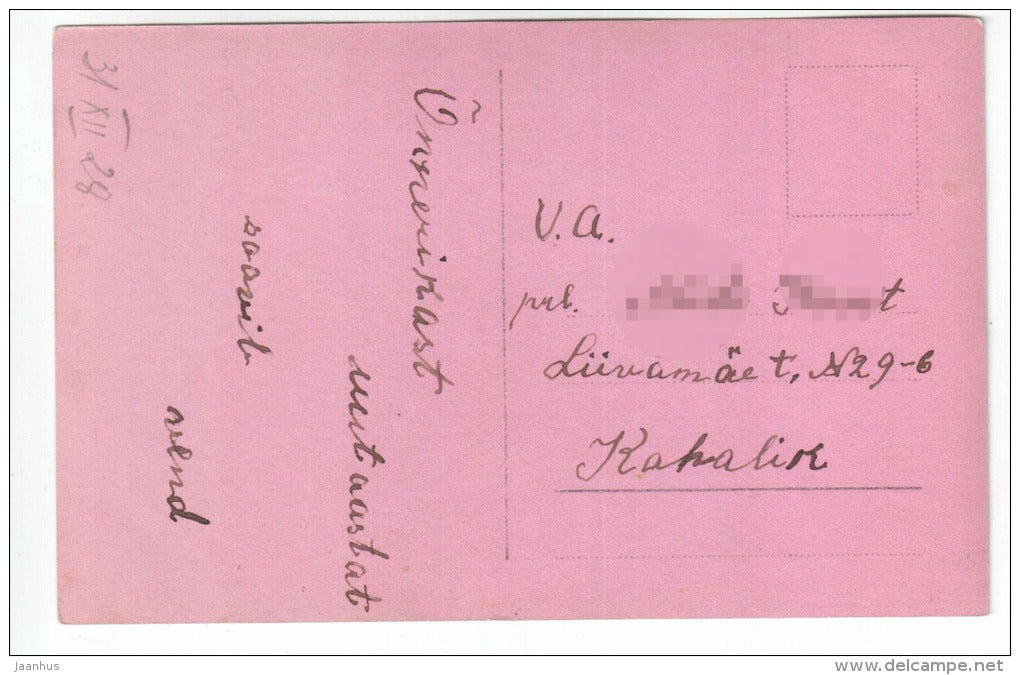 31 XII 28
Õnnerikast
uut aastat
soovib
vend
V. A.
prl.
Liivamäe t, N 29-6
Kohalik
Jaanhus
www.delcampe.net